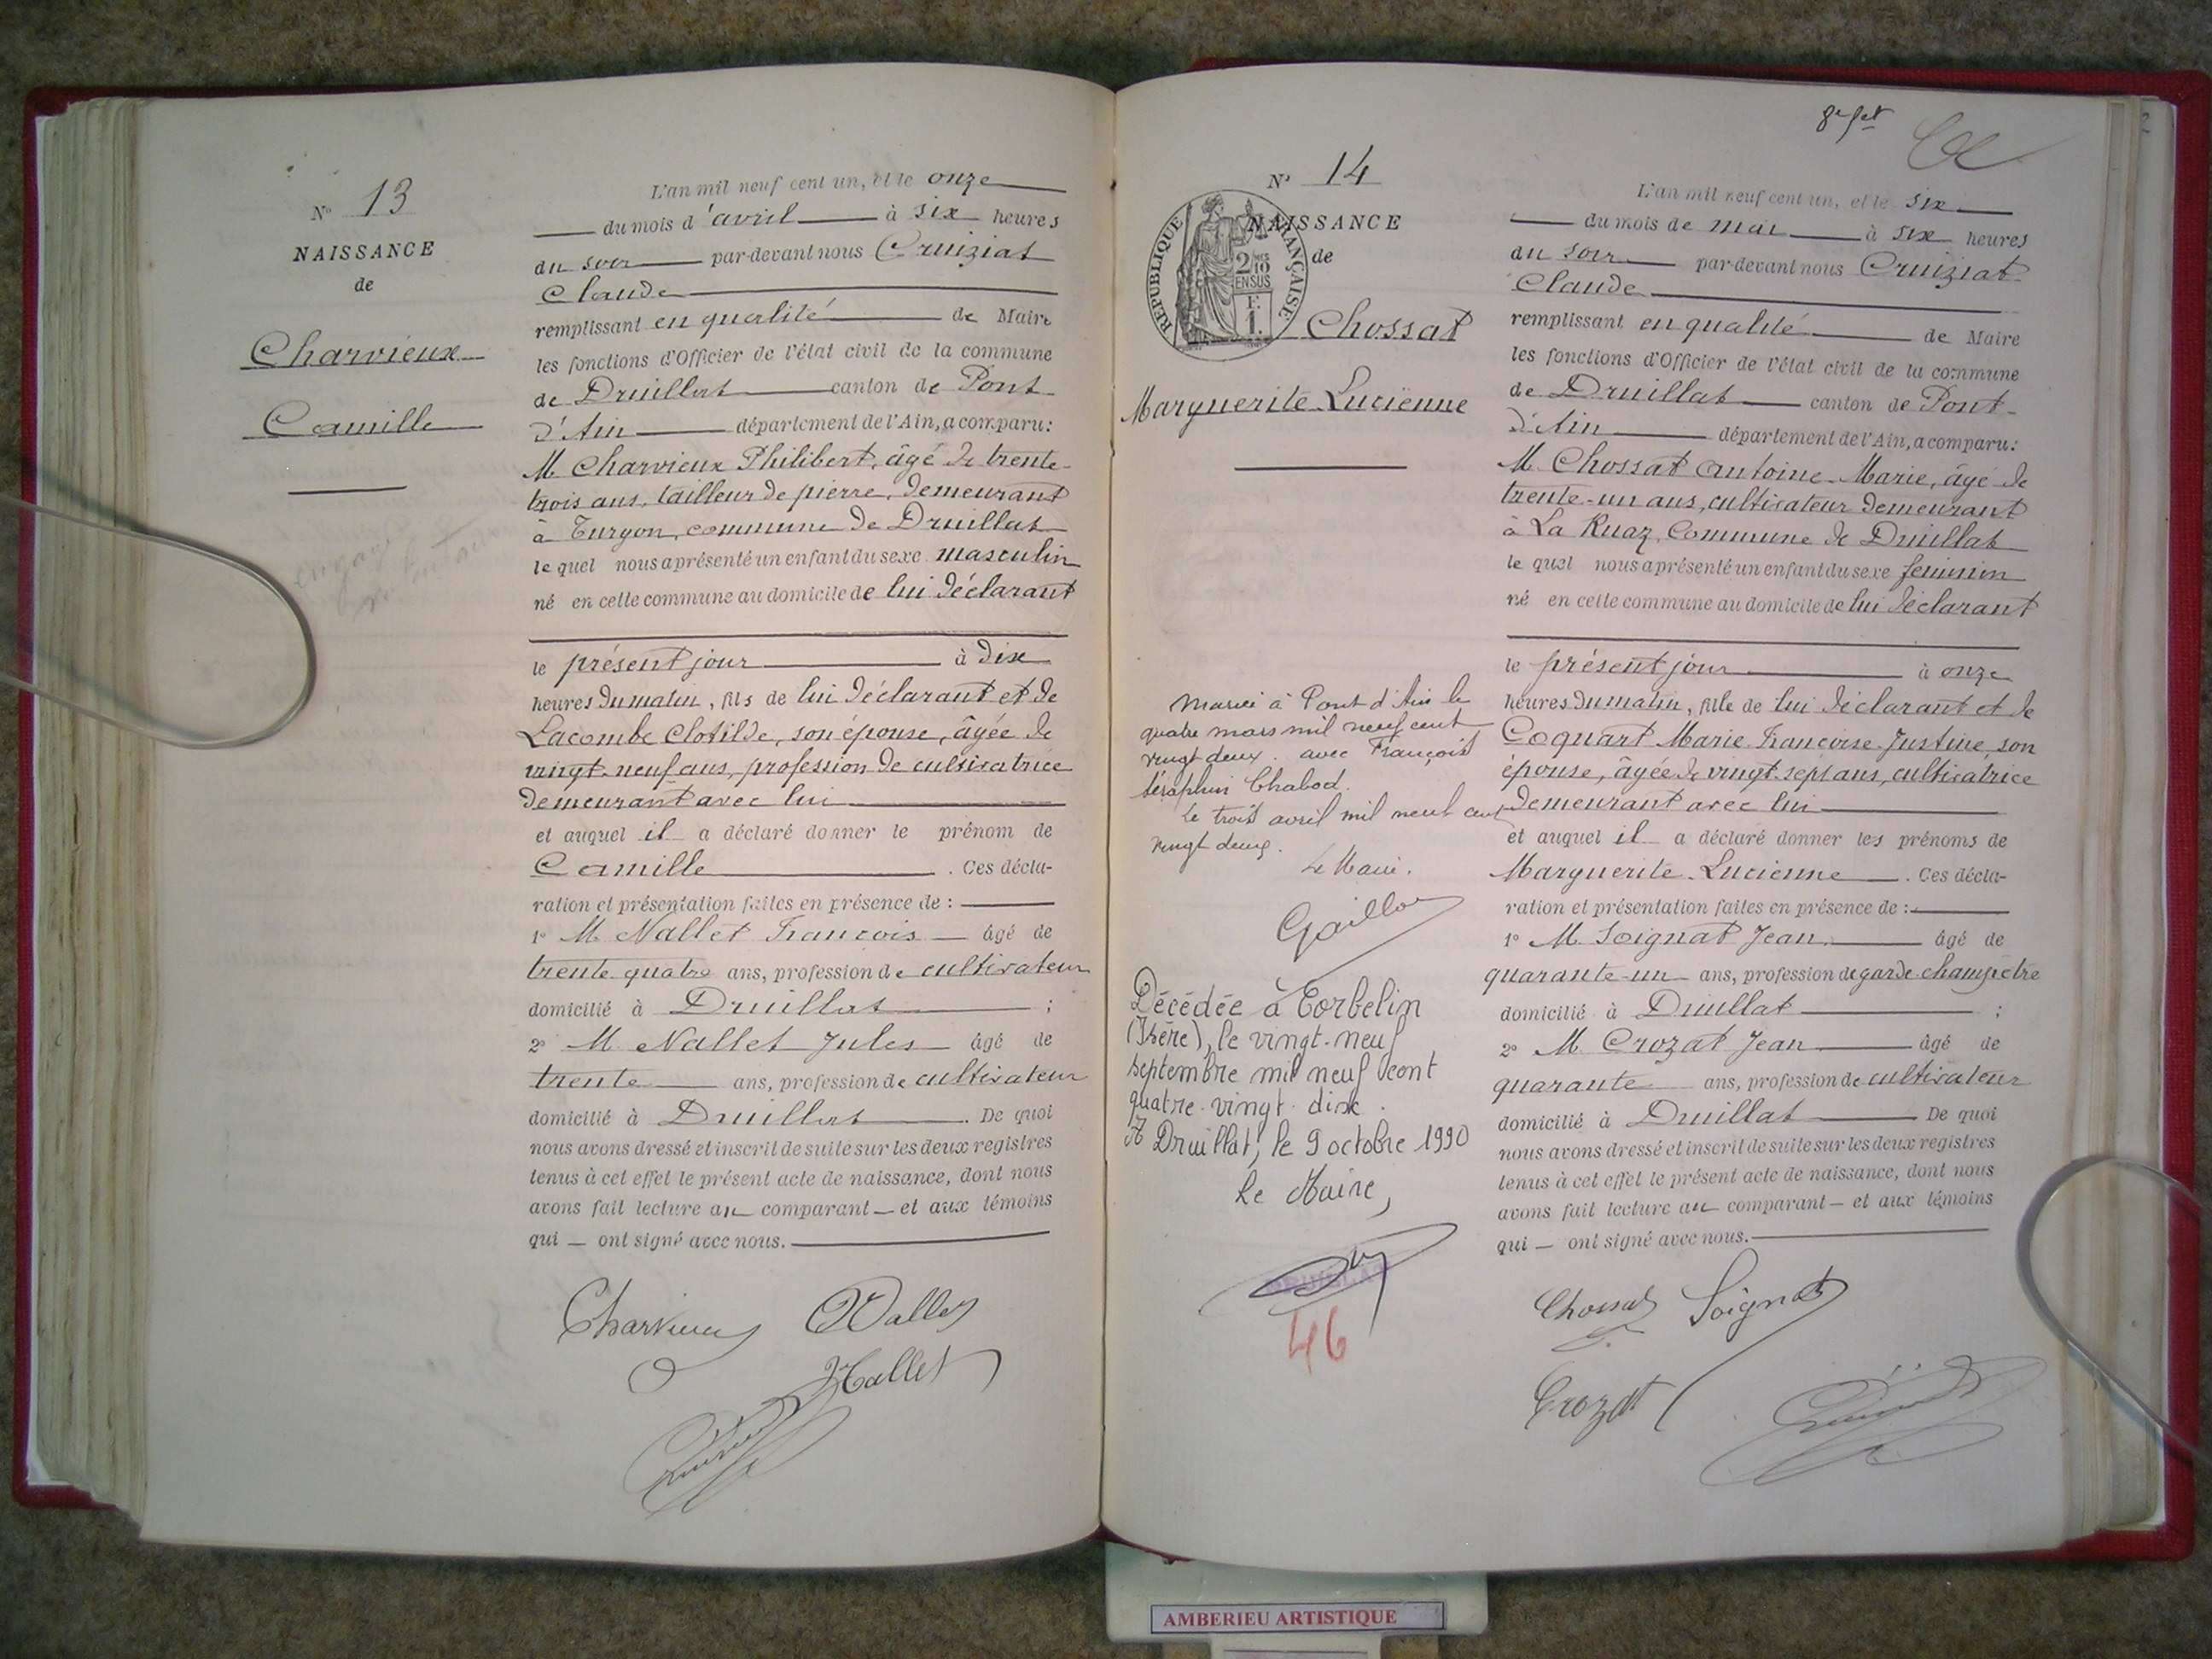 N° 13
NAISSANCE
de
Charvieux
Camille
L'an mil neuf cent un, et le onze
du mois d'avril à six heures
du soir par-devant nous Cruiziat
Claude
remplissant en qualité de Maire
les fonctions d'Officier de l'état civil de la commune
de Druillat canton de Pont
d'Ain département de l'Ain, a comparu:
M. Charvieux Philibert, âgé de trente-
trois ans, tailleur de pierre, demeurant
à Turgon, commune de Druillat
le quel nous a présenté un enfant du sexe masculin
né en cette commune au domicile de lui déclarant
le présent jour à dix
heures du matin, fils de lui déclarant et de
Lacombe Clotilde, son épouse, âgée de
vingt-neuf ans, profession de cultivatrice
demeurant avec lui
et auquel il a déclaré donner le prénom de
Camille. Ces décla-
ration et présentation faites en présence de :
1° M. Nallet François âgé de
trente quatre ans, profession de cultivateur
domicilié à Druillat ;
2° M. Nallet Jules âgé de
trente ans, profession de cultivateur
domicilié à Druillat. De quoi
nous avons dressé et inscrit de suite sur les deux registres
tenus à cet effet le présent acte de naissance, dont nous
avons fait lecture au comparant — et aux témoins
qui — ont signé avec nous.
Charvieux Nallet
J Nallet
8e fet
N° 14
RÉPUBLIQUE FRANÇAISE
2/10 EN SUS
NAISSANCE
de
Chossat
Marguerite Lucienne
Mariée à Pont d'Ain le
quatre mars mil neuf cent
vingt deux avec François
Séraphin Chabod.
Le trois avril mil neuf cent
vingt deux.
Le Maire.
Décédée à Corbelin
(Isère), le vingt-neuf
septembre mil neuf cent
quatre-vingt-dix.
A Druillat, le 9 octobre 1990
Le Maire,
46
L'an mil neuf cent un, et le six
du mois de mai à six heures
du soir par-devant nous Cruiziat
Claude
remplissant en qualité de Maire
les fonctions d'Officier de l'état civil de la commune
de Druillat canton de Pont-
d'Ain département de l'Ain, a comparu:
M. Chossat Antoine-Marie, âgé de
trente-un ans, cultivateur demeurant
à La Ruaz, Commune de Druillat
le quel nous a présenté un enfant du sexe feminin
né en cette commune au domicile de lui déclarant
le présent jour à onze
heures du matin, fille de lui déclarant et de
Coquart Marie Françoise Justine, son
épouse, âgée de vingt-sept ans, cultivatrice
demeurant avec lui
et auquel il a déclaré donner les prénoms de
Marguerite-Lucienne. Ces décla-
ration et présentation faites en présence de :
1° M. Soignat Jean. âgé de
quarante-un ans, profession de garde-champêtre
domicilié à Druillat ;
2° M. Crozat Jean âgé de
quarante ans, profession de cultivateur
domicilié à Druillat De quoi
nous avons dressé et inscrit de suite sur les deux registres
tenus à cet effet le présent acte de naissance, dont nous
avons fait lecture au comparant — et aux témoins
qui — ont signé avec nous.
Chossat Soignat
Crozat
AMBERIEU ARTISTIQUE